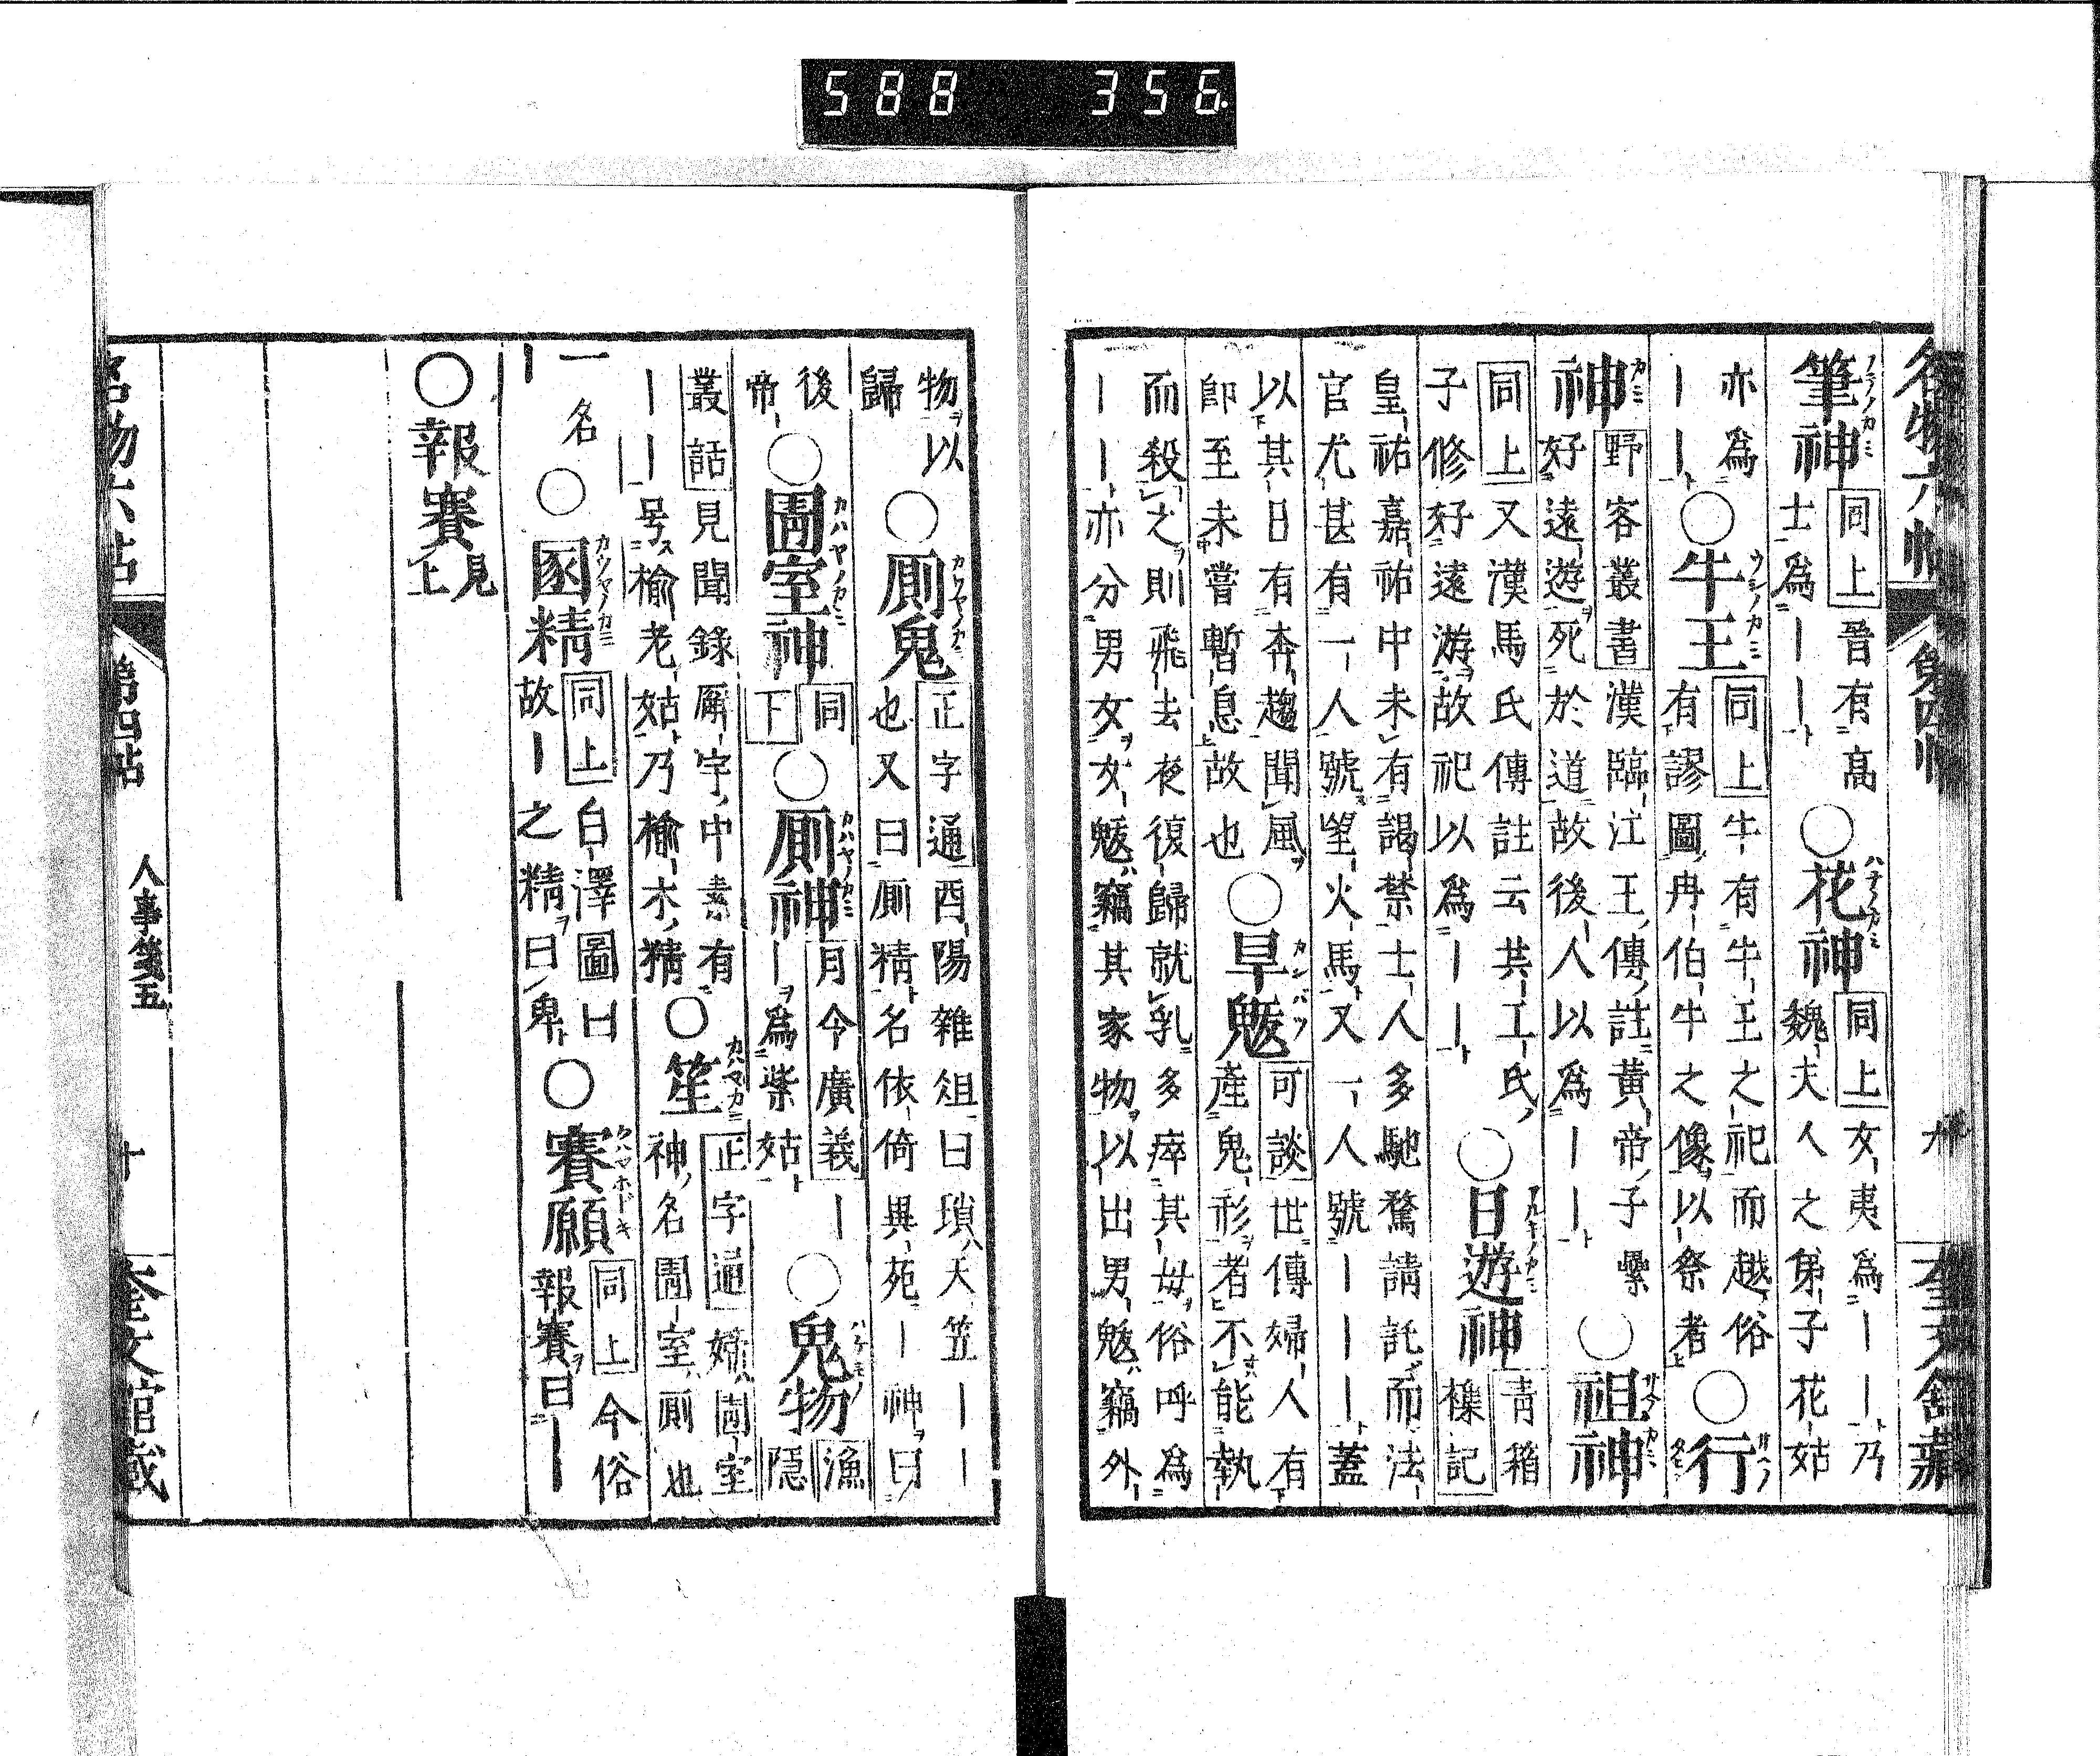 588 356
名物六帖 第四帖 九 奎文館藏
筆神 同上 晉有高士爲｜｜ ○花神 同上 女夷爲｜｜乃魏夫人之弟子花姑
亦爲｜｜ ○牛王 同上 牛有牛王之祀而越俗有謬圖冉伯牛之像以祭者 ○行
神 野客叢書 漢臨江王傳註黃帝子纍好遠遊死於道故後人以爲｜｜ ○祖神
同上 又漢馬氏傳註云共工氏子修好遠游故祀以爲｜｜ ○日遊神 青箱襍記
皇祐嘉祐中未有謁禁士人多馳騖請託而法官尤甚有一人號望火馬又一人號｜｜｜蓋
以其日有奔趨聞風即至未嘗暫息故也 ○旱魃 可談 世傳婦人有產鬼形者不能執
而殺之則飛去夜復歸就乳多瘁其母俗呼爲｜｜亦分男女女魃竊其家物以出男魃竊外
物以歸 ○厠鬼 正字通 酉陽雜俎曰瑣天竺｜｜也又曰厠精名依倚異苑｜神曰
後帝 ○圊室神 同下 ○厠神 月令廣義 ｜｜爲紫姑 ○鬼物 漁隱
叢話 見聞錄厠字中素有｜｜号楡老姑乃楡木精 ○ 正字通 神名圊室厠也
一名｜ ○圂精 同上 白澤圖曰故｜之精曰卑 ○賽願 同上 今俗報賽曰｜
○報賽 見上
名物六帖 第四帖 人事箋五 十 奎文館藏